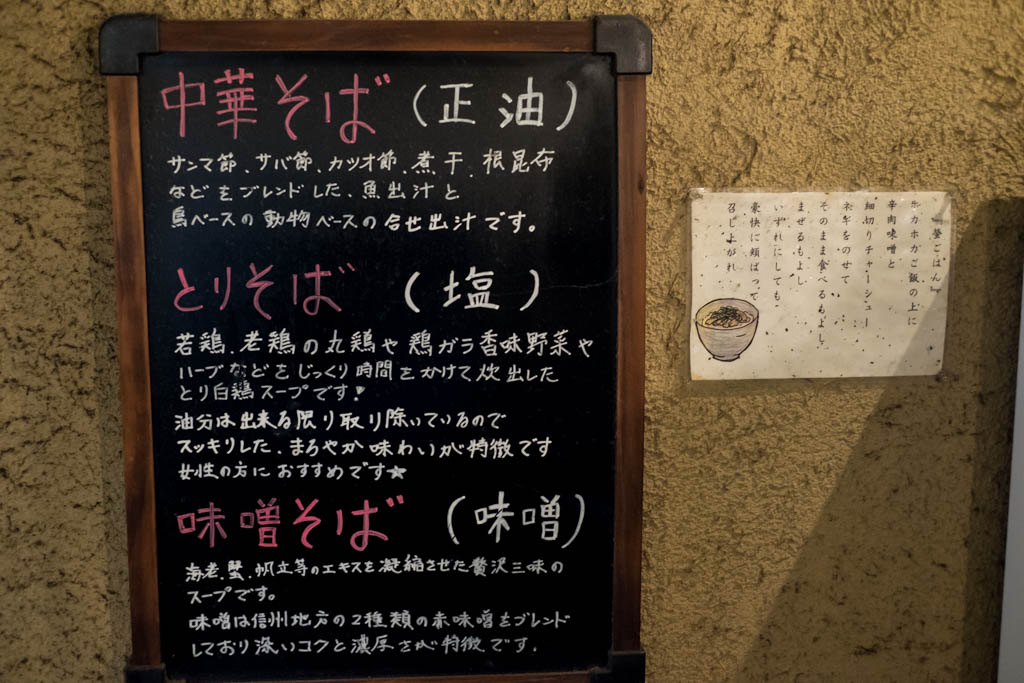 中華そば (正油)
サンマ節、サバ節、カツオ節、煮干、根昆布
などをブレンドした、魚出汁と
鳥ベースの動物ベースの合せ出汁です。
とりそば (塩)
若鶏、老鶏の丸鶏や鶏ガラ香味野菜や
ハーブなどをじっくり時間をかけて炊出した
とり白鶏スープです!
油分は出来る限り取り除いているので
スッキリした、まろやか味わいが特徴です
女性の方におすすめです★
味噌そば (味噌)
海老、蟹、帆立等のエキスを凝縮させた贅沢三味の
スープです。
味噌は信州地方の2種類の赤味噌をブレンド
しており深いコクと濃厚さが特徴です.
ごはん』
ホカホカご飯の上に
辛肉味噌と
細切りチャーシュー
ネギをのせて
そのまま食べるもよし
まぜるもよし
いずれにしても
豪快に頬ばって
召し上がれ